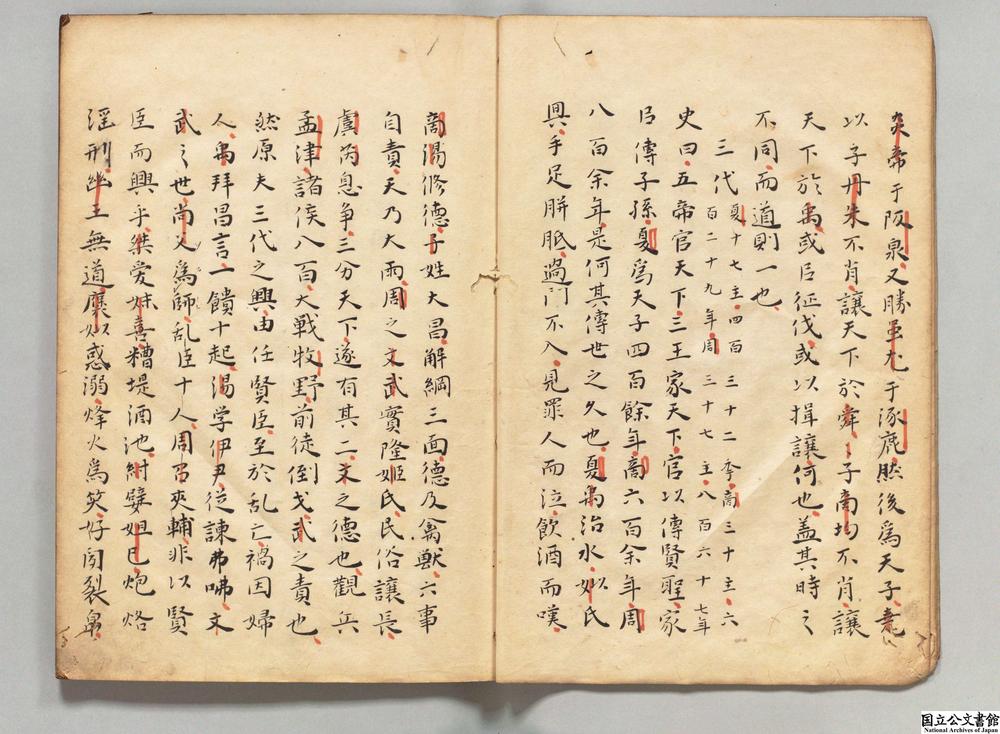 炎帝于阪泉又勝蚩尤于涿鹿然後為天子堯
以子丹朱不肖讓天下於舜〻子商均不肖讓
天下於禹或臣征伐或以揖讓何也盖其時之
不同而道則一也
三代夏十七主四百三十二季商三十主六百二十九年周三十七主八百六十七年
史曰五帝官天下三王家天下官以傳賢聖家
臣傳子孫夏為天子四百餘年商六百余年周
八百余年是何其傳世之久也夏禹治水姒氏
興手足胼胝過门不入見罪人而泣飲酒而嘆
商湯修德子姓大昌解綱三面德及禽獣六事
自責天乃大雨周之文武實隆姬氏民俗讓長
虞芮息争三分天下遂有其二文之德也觀兵
孟津諸侯八百大戦牧野前徒倒戈武之責也
然原夫三代之興由任賢臣至於乱亡禍因婦
人禹拜昌言一饋十起湯学伊尹従諫弗咈文
武之世尚父為師乱臣十人周召夾輔非以賢
臣而興乎桀愛妺喜糟堤酒池紂嬖妲已炮烙
滛刑幽王無道褒姒惑溺烽火為笑好闻裂帛
国立公文書館
National Archives of Japan